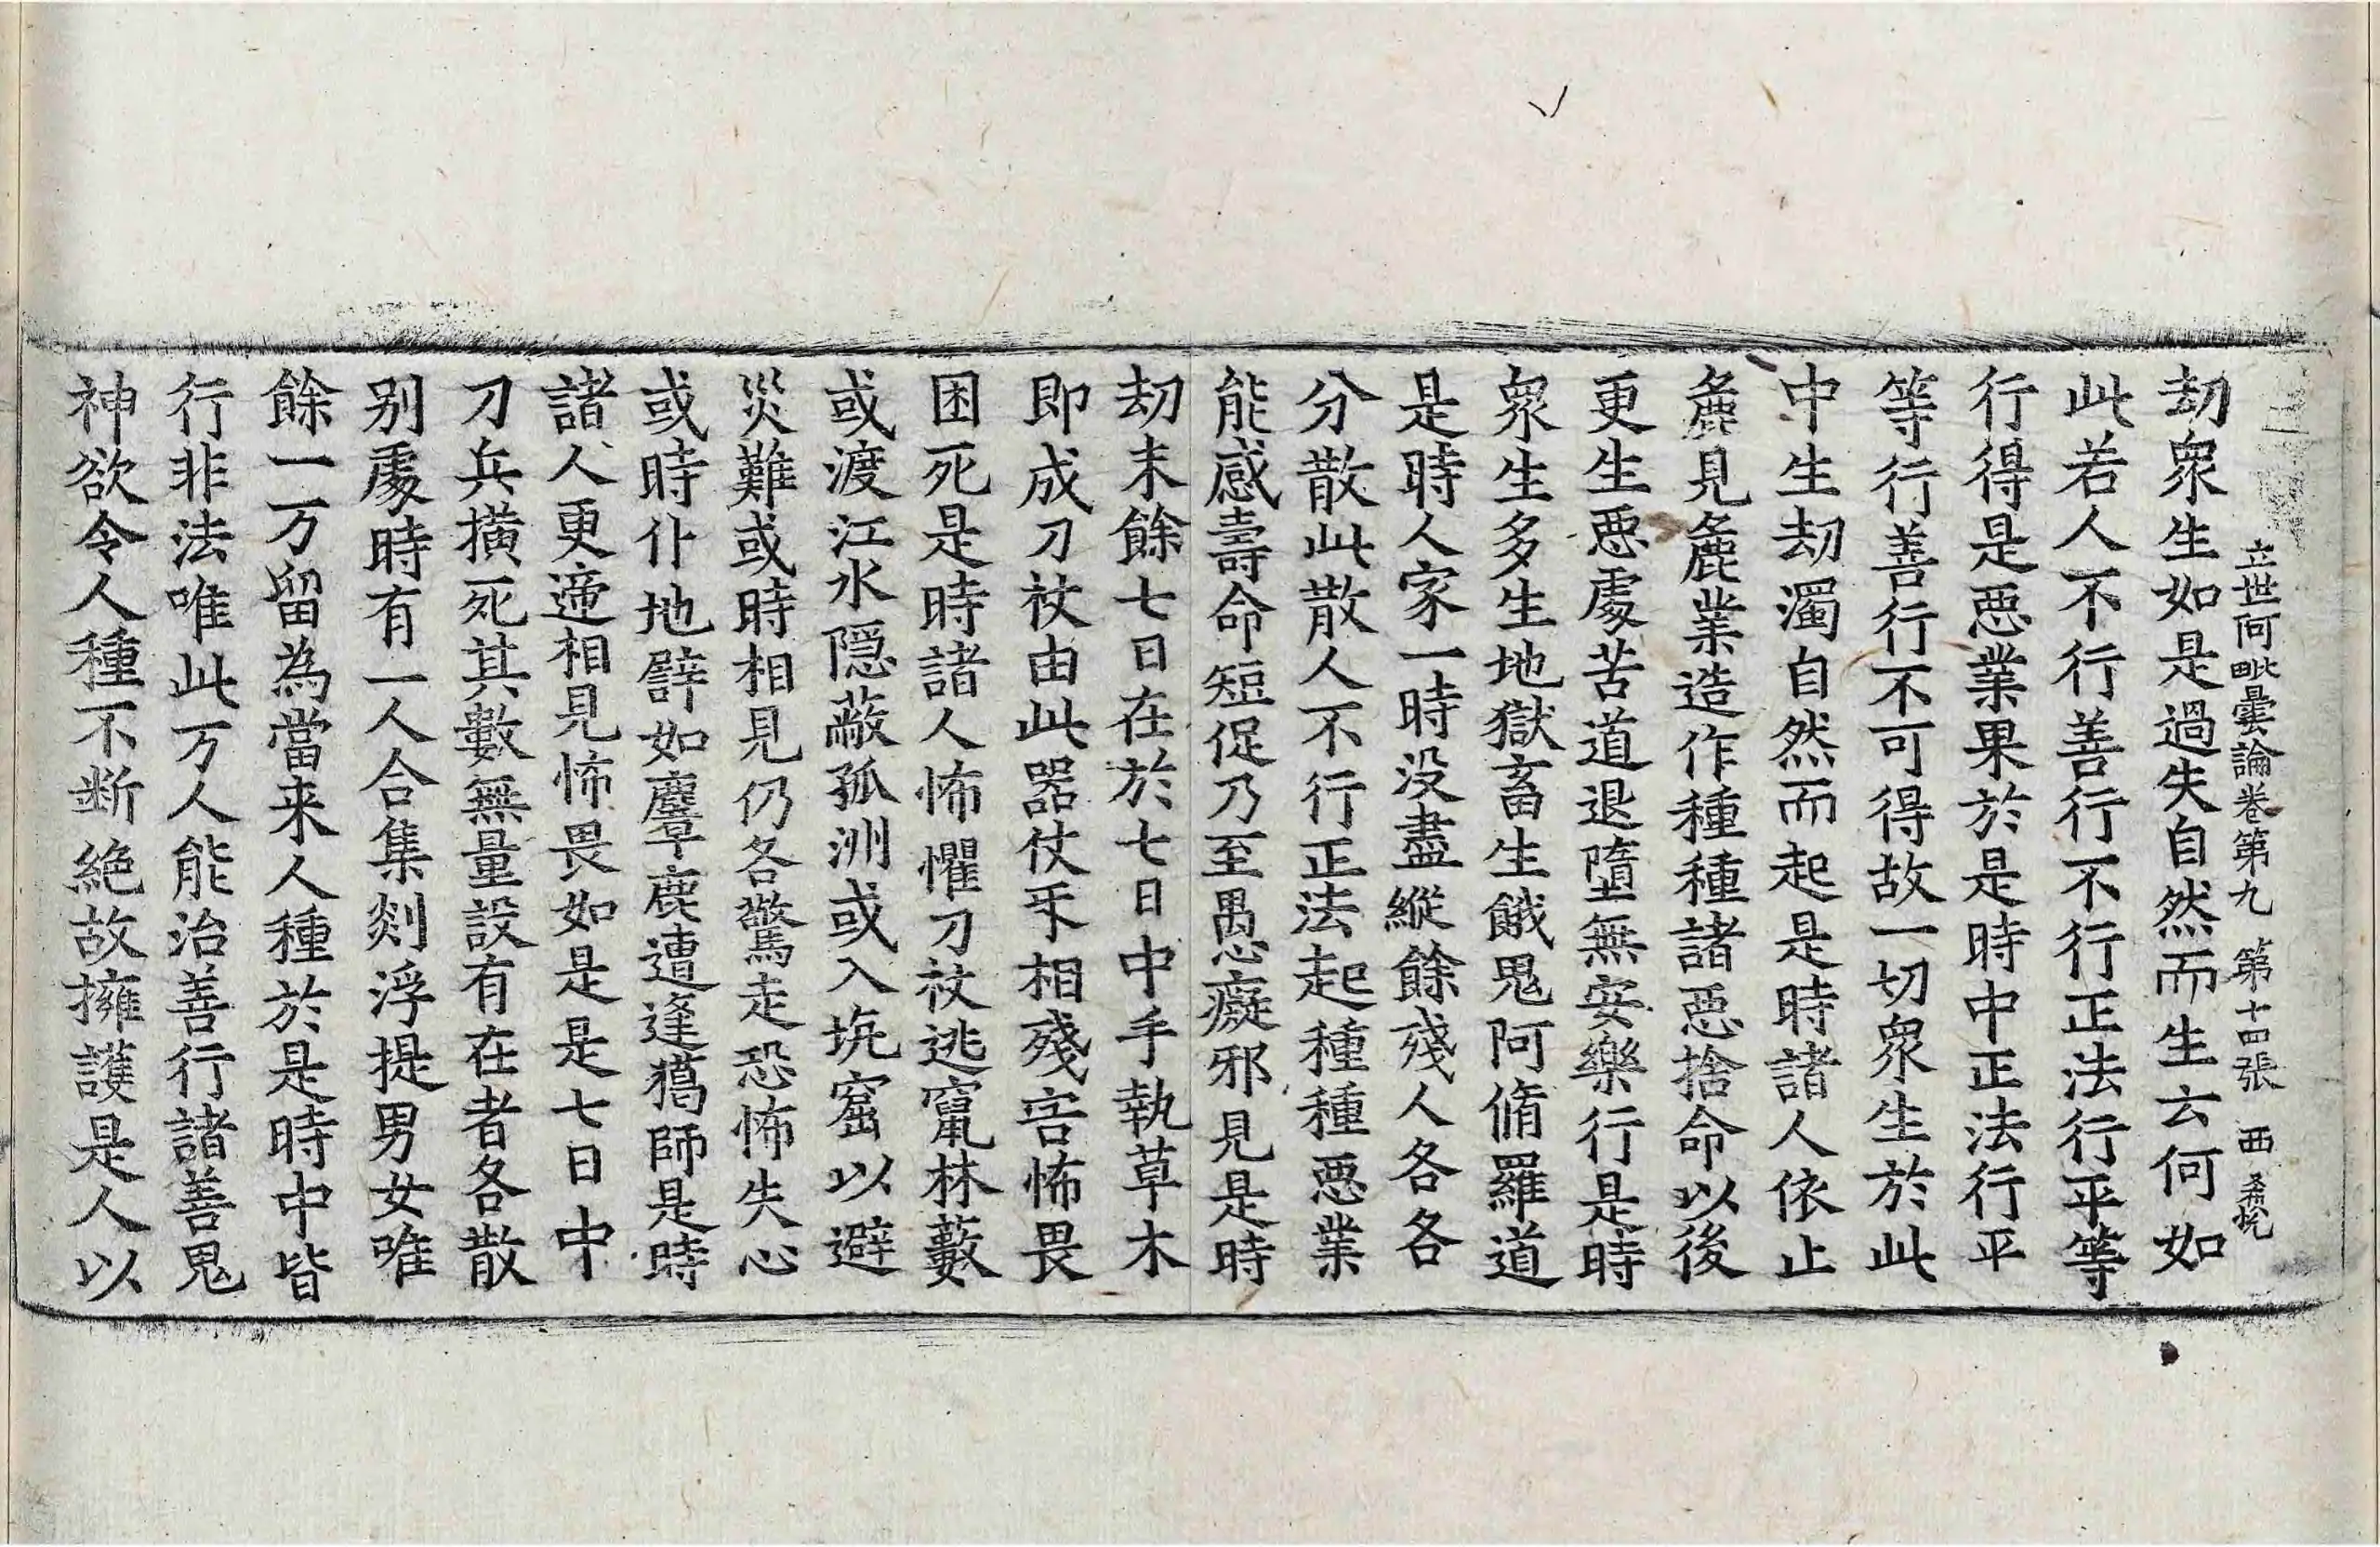 立世阿毗曇論卷第九 第十四張 西
劫衆生如是過失自然而生云何如
此若人不行善行不行正法行平等
行得是惡業果於是時中正法行平
等行善行不可得故一切衆生於此
中生劫濁自然而起是時諸人依止
麁見麁業造作種種諸惡捨命以後
更生惡處苦道退墮無安樂行是時
衆生多生地獄畜生餓鬼阿脩羅道
是時人家一時没盡縱餘殘人各各
分散此散人不行正法起種種惡業
能感壽命短促乃至愚癡邪見是時
劫末餘七日在於七日中手執草木
即成刀杖由此器仗互相殘害怖畏
困死是時諸人怖懼刀杖逃竄林藪
或渡江水隱蔽孤洲或入坑窟以避
災難或時相見仍各驚走恐怖失心
或時仆地譬如麞鹿遭逢獵師是時
諸人更遞相見怖畏如是是七日中
刀兵橫死其數無量設有在者各散
别處時有一人合集剡浮提男女唯
餘一万留為當来人種於是時中皆
行非法唯此万人能治善行諸善鬼
神欲令人種不断絶故擁護是人以